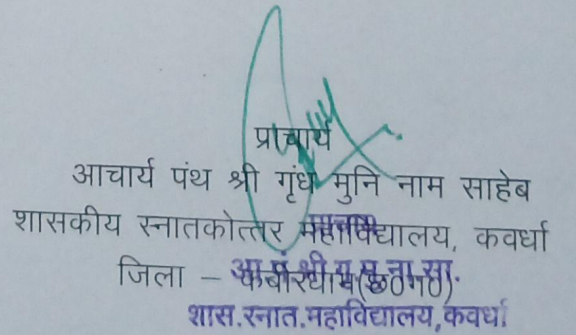 प्राचार्य
आचार्य पंथ श्री गृंध मुनि नाम साहेब
शासकीय स्नातकोत्तर महाविद्यालय, कवर्धा
जिला – कबीरधाम(छ०ग०)
आ.पं.श्री.ग.मु.ना.सा.
शास.स्नात.महाविद्यालय,कवर्धा